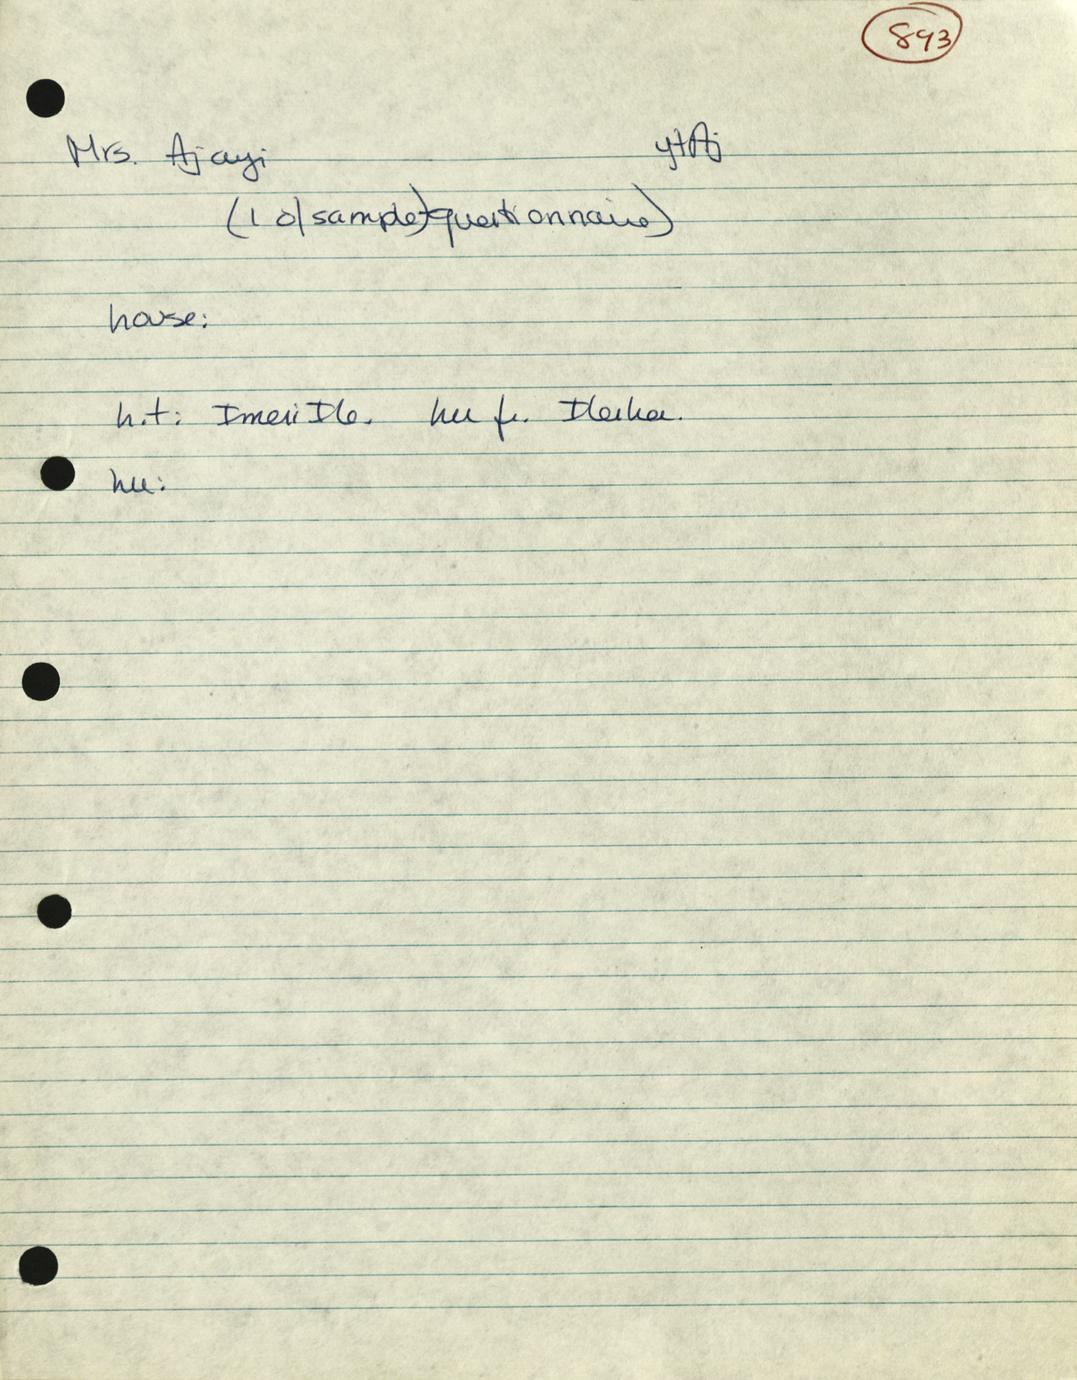 893
Mrs. Ajayi ytAj
(1 o/sample)+questionnaire)
house:
h.t: Imesi Ile. hu fr. Ilesha.
hu: